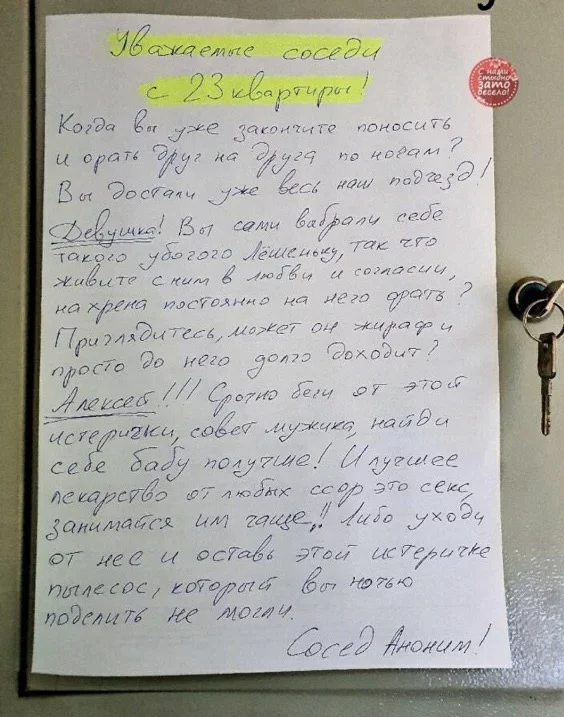 Уважаемые соседи
с 23 квартиры!
Когда вы уже закончите поносить
и орать друг на друга по ночам?
Вы достали уже весь наш подъезд!
Девушка! Вы сами выбрали себе
такого убогого Лёшеньку, так что
живите с ним в любви и согласии,
на хрена постоянно на него орать?
Приглядитесь, может он жираф и
просто до него долго доходит?
Алексей!!! Срочно беги от этой
истерички, совет мужика, найди
себе бабу получше! И лучшее
лекарство от любых ссор это секс,
занимайся им чаще!! Либо уходи
от нее и оставь этой истеричке
пылесос, который вы ночью
поделить не могли.
Сосед Аноним!
С нами
стыдно
зато
весело!